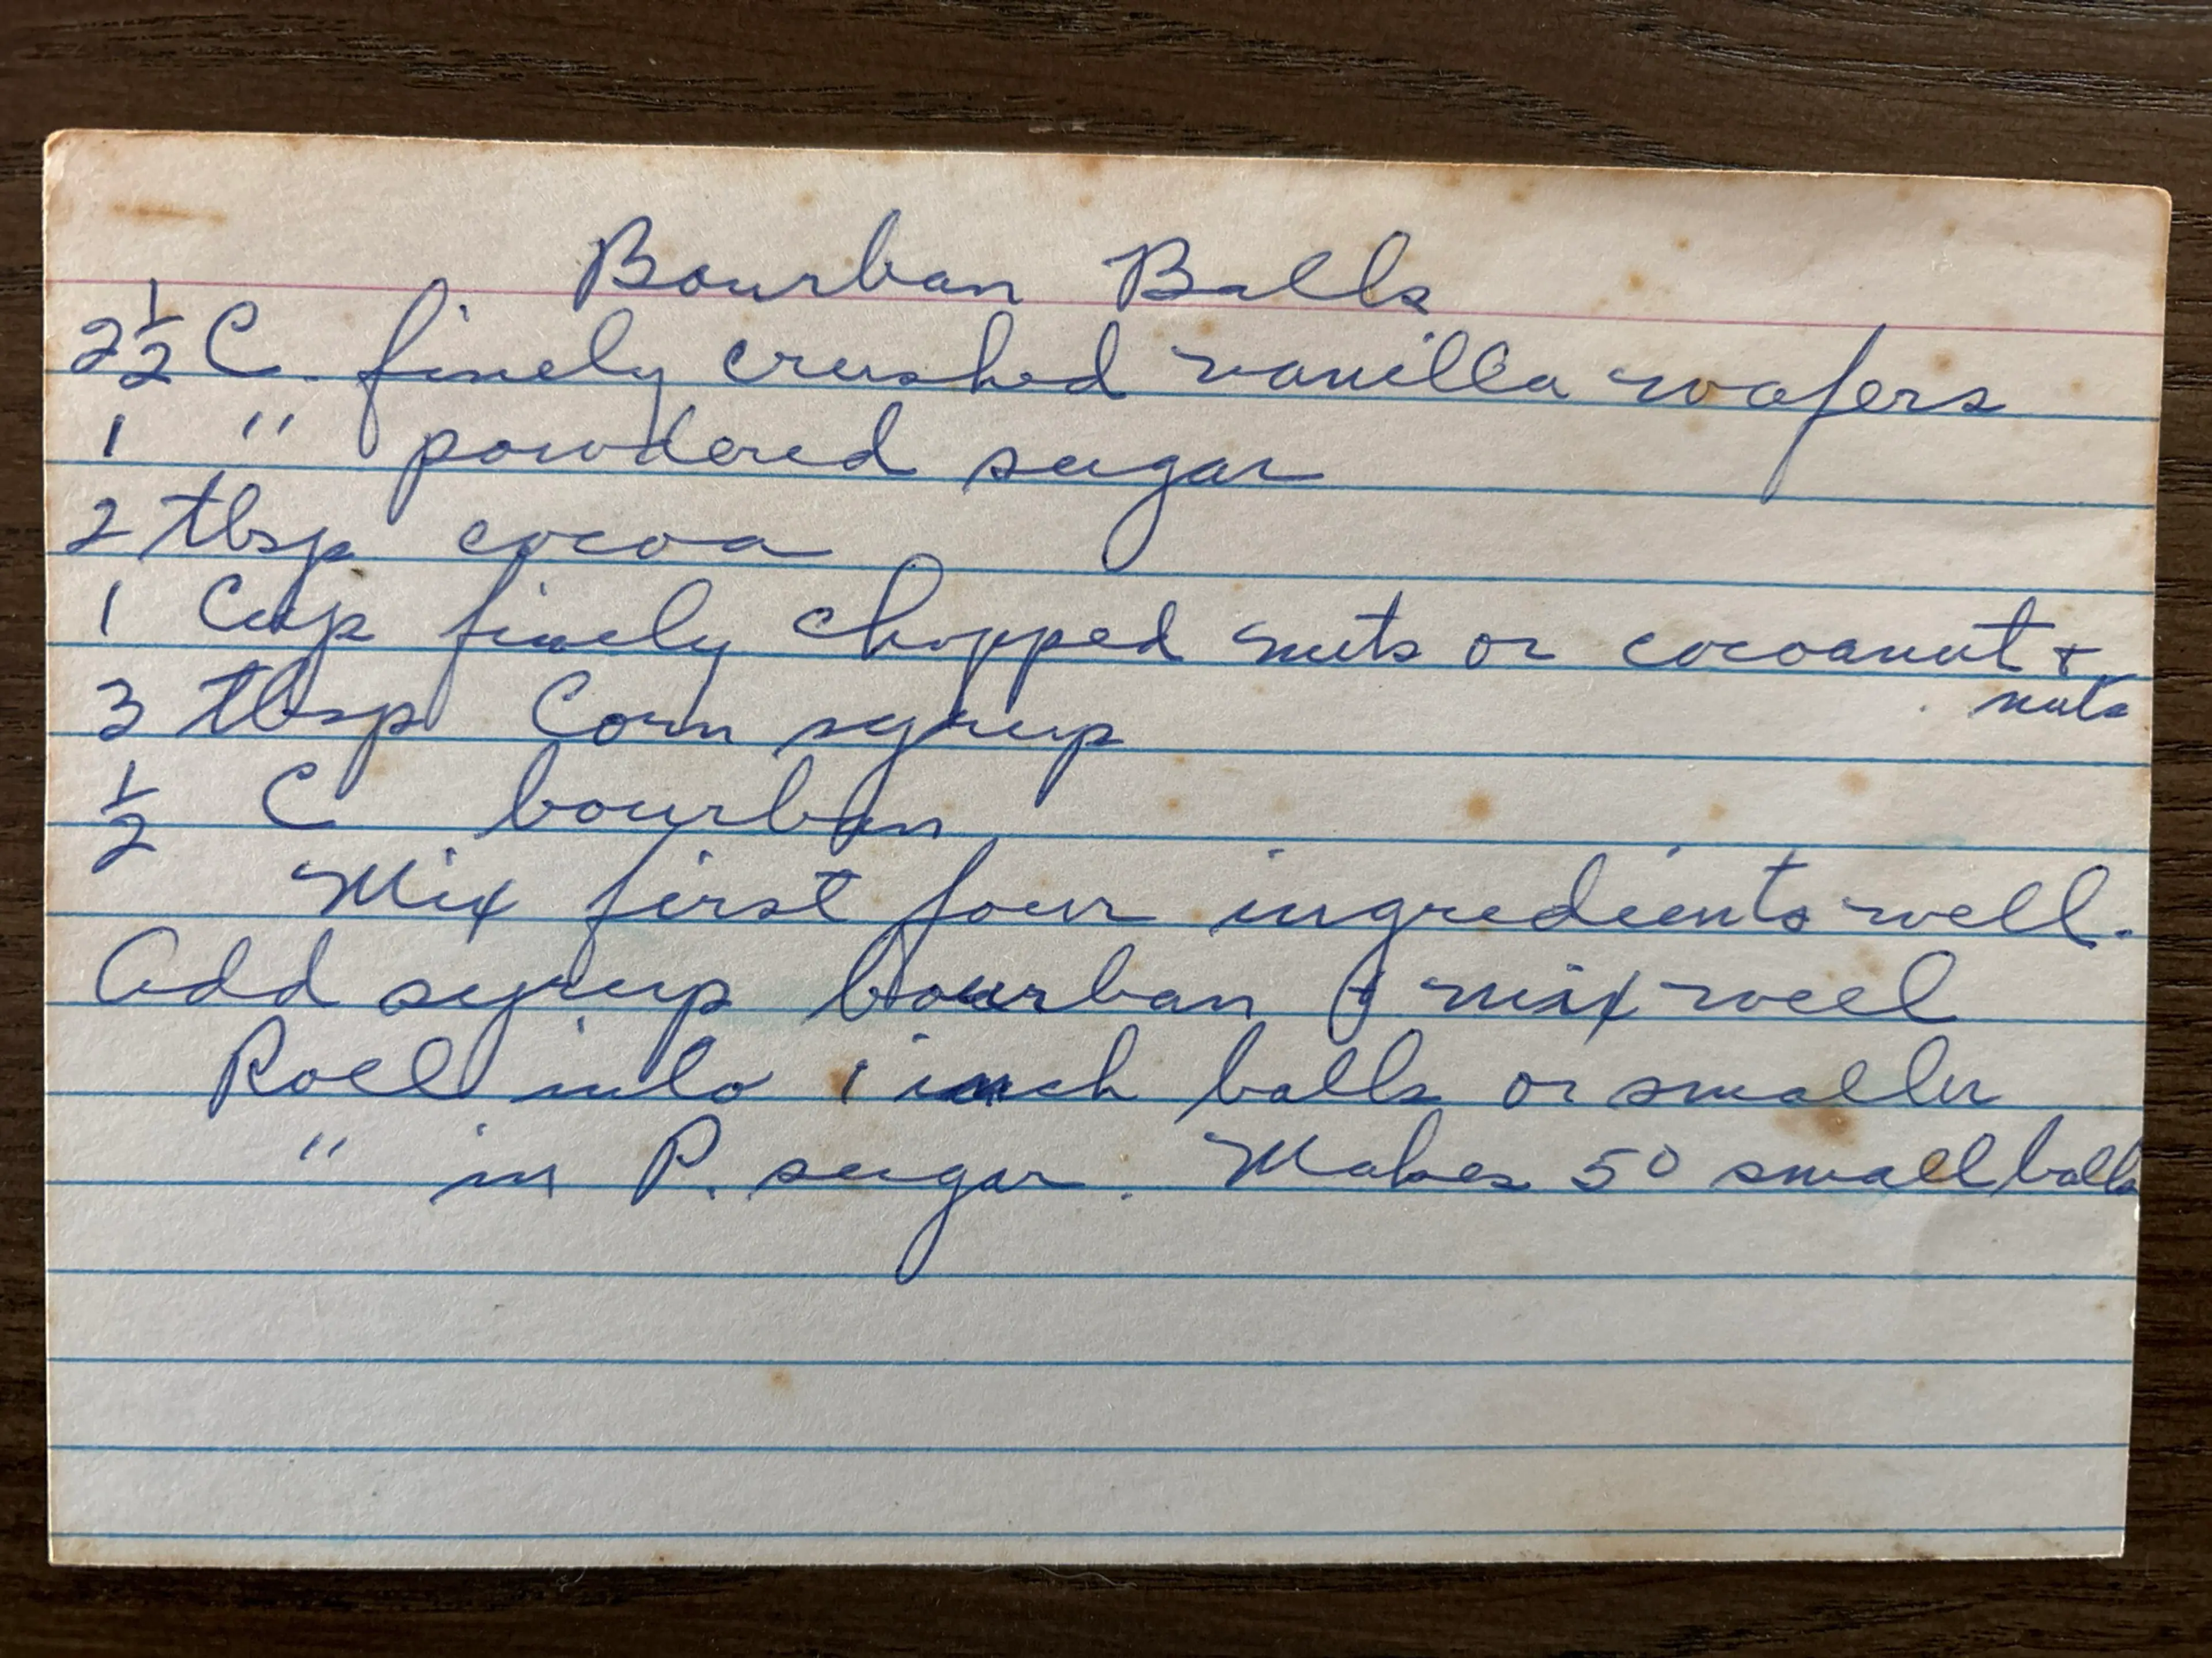 Bourban Balls
2 1/2 C. finely crushed vanilla wafers
1 " powdered sugar
2 tbsp cocoa
1 Cup finely chopped nuts or cocoanut +
nuts
3 tbsp Corn syrup
1/2 C bourban
Mix first four ingredients well.
Add syrup bourban & mix well
Roll into 1 inch balls or smaller
" in P. sugar. Makes 50 small balls